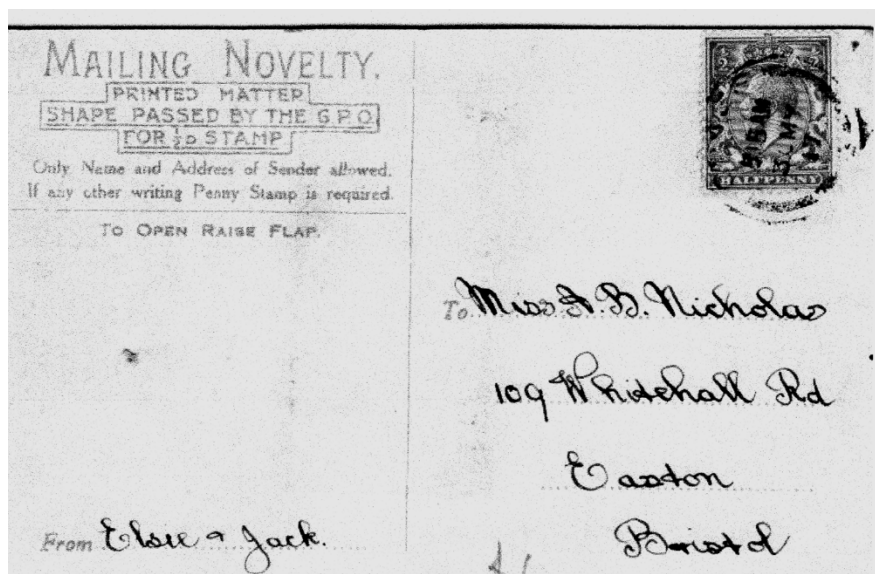 MAILING NOVELTY.
PRINTED MATTER
SHAPE PASSED BY THE G.P.O.
FOR ½D STAMP
Only Name and Address of Sender allowed.
If any other writing Penny Stamp is required.
TO OPEN RAISE FLAP.
½ ½
HALFPENNY
To Miss A. B. Nicholas
109 Whitehall Rd
Easton
Bristol
From Elsie & Jack.